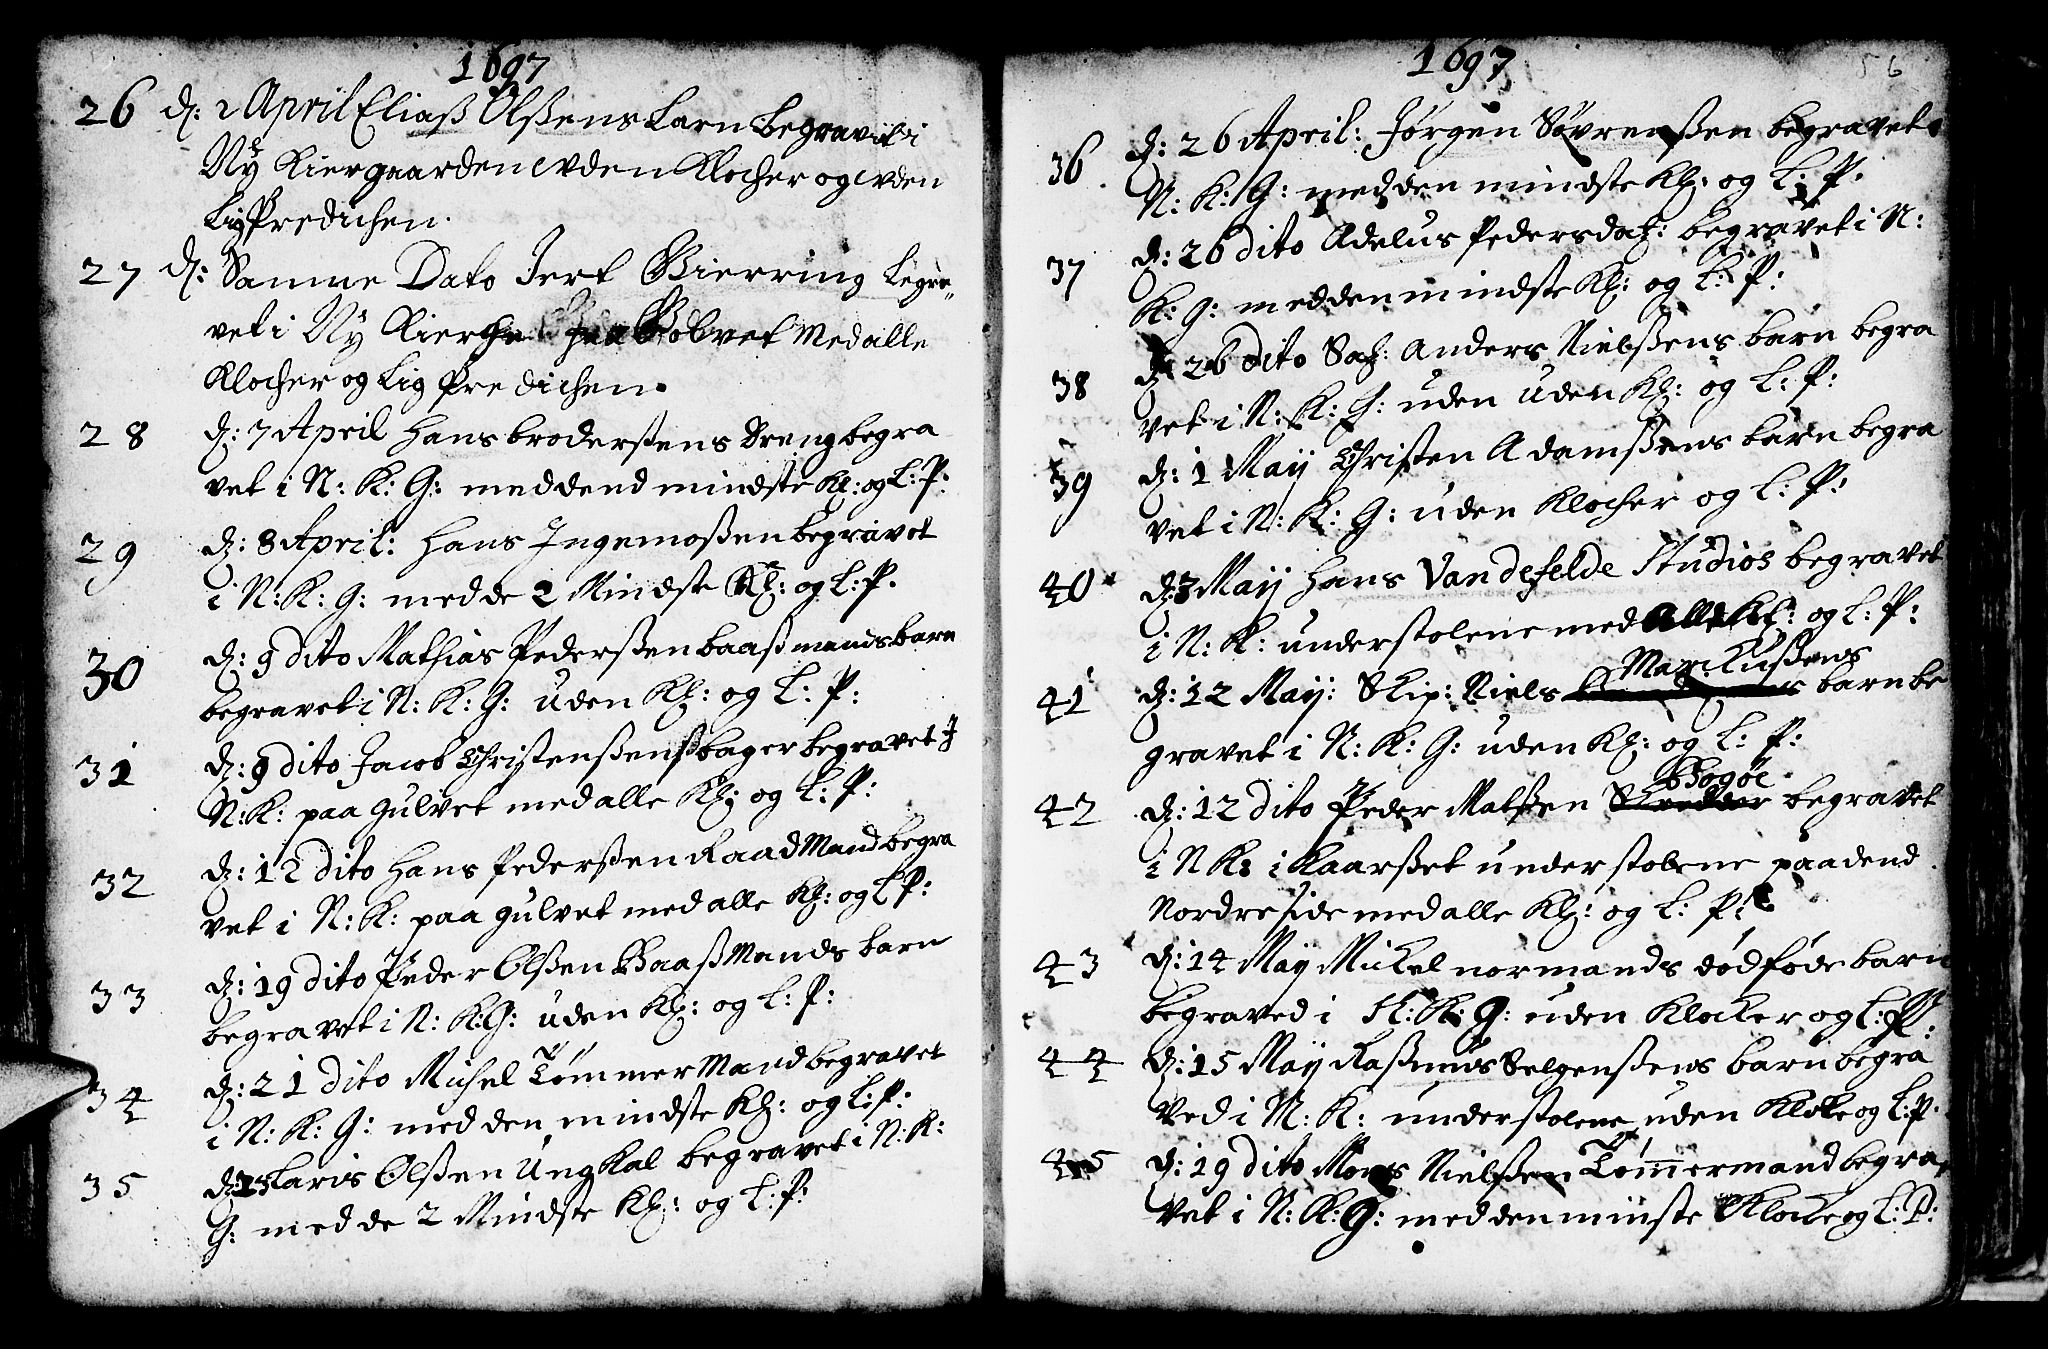 1697
26 d: 2 April Eliaß Olßens barn begravit i
Ny Kiergaarden uden Klocher og uden
LigPredichen.
27 d: Samme Dato Jert Bierring begra„
vet i Ny Kierche paa Golvet Med alle
Klocher og Lig Predichen.
28 d: 7 April Hans broderßens dreng begra
vet i N: K: G: med dend mindste Kl: og L: P:
29 d: 8 April: Hans Ingemoßen begravet
i N: K: G: med de 2 Mindste Kl: og L: P.
30 d: 9 dito Mathias Pederßen baaßmands barn
begravet i N: K: G: uden Kl: og L: P:
31 d: 9 dito Jacob Christenßens bager begravet J
N: K: paa gulvet med alle Kl: og L: P:
32 d: 12 dito Hans Pederßen Raad Mand begra
vet i N: K: paa gulvet med alle Kl: og L P:
33 d: 19 dito Peder Olßen BaaßMands barn
begravet i N: K: G: uden Kl: og L: P:
34 d: 21 dito Michel Tømmer Mand begravet
i N: K: G: med den mindste Kl: og L: P:
35 d: 25 Laris Olßen Ung Kal begravet i N: K:
G: med de 2 Mindste Kl: og L: P:
1697
56
36 d: 26 April: Jørgen Søvrenßen begravet
N: K: G: med den mindste Kl: og L: P.
37 d: 26 dito Adelus Pedersdat: begravet i N:
K: G: med den mindste Kl: og L: P:
38 d: 26 dito Sal: Anders Nielßens barn begra
vet i N: K: G: uden uden Kl: og L: P:
39 d: 1 Maij Christen Adamßens barn begra
vet i N: K: G: uden Klocher og L: P:
40 d: 3 Maij Hans Vandefelde Studios begravet
i N: K: under stolene med Alle Kl: og L: P:
Markußens
41 d: 12 Maij: Skip: Niels barn be
gravet i N: K: G: uden Kl: og L: P:
Bogøe
42 d: 12 dito Peder Matßen Skredder begravet
i N K: i Kaarßet under stolene paa dend
Nordre side med alle Kl: og L: P:
43 d: 14 Maij Mickel normands dødføde barn
begraved i N: K: G: uden Klocker og L: P:
44 d: 15 Maij Raßmus Selgenßens barn begra
ved i N: K: under stolene uden Klocke og L: P.
45 d: 19 dito Mons Nielßen Tømmermand begra„
vet i N: K: G: med den minste Klocke og L: P: